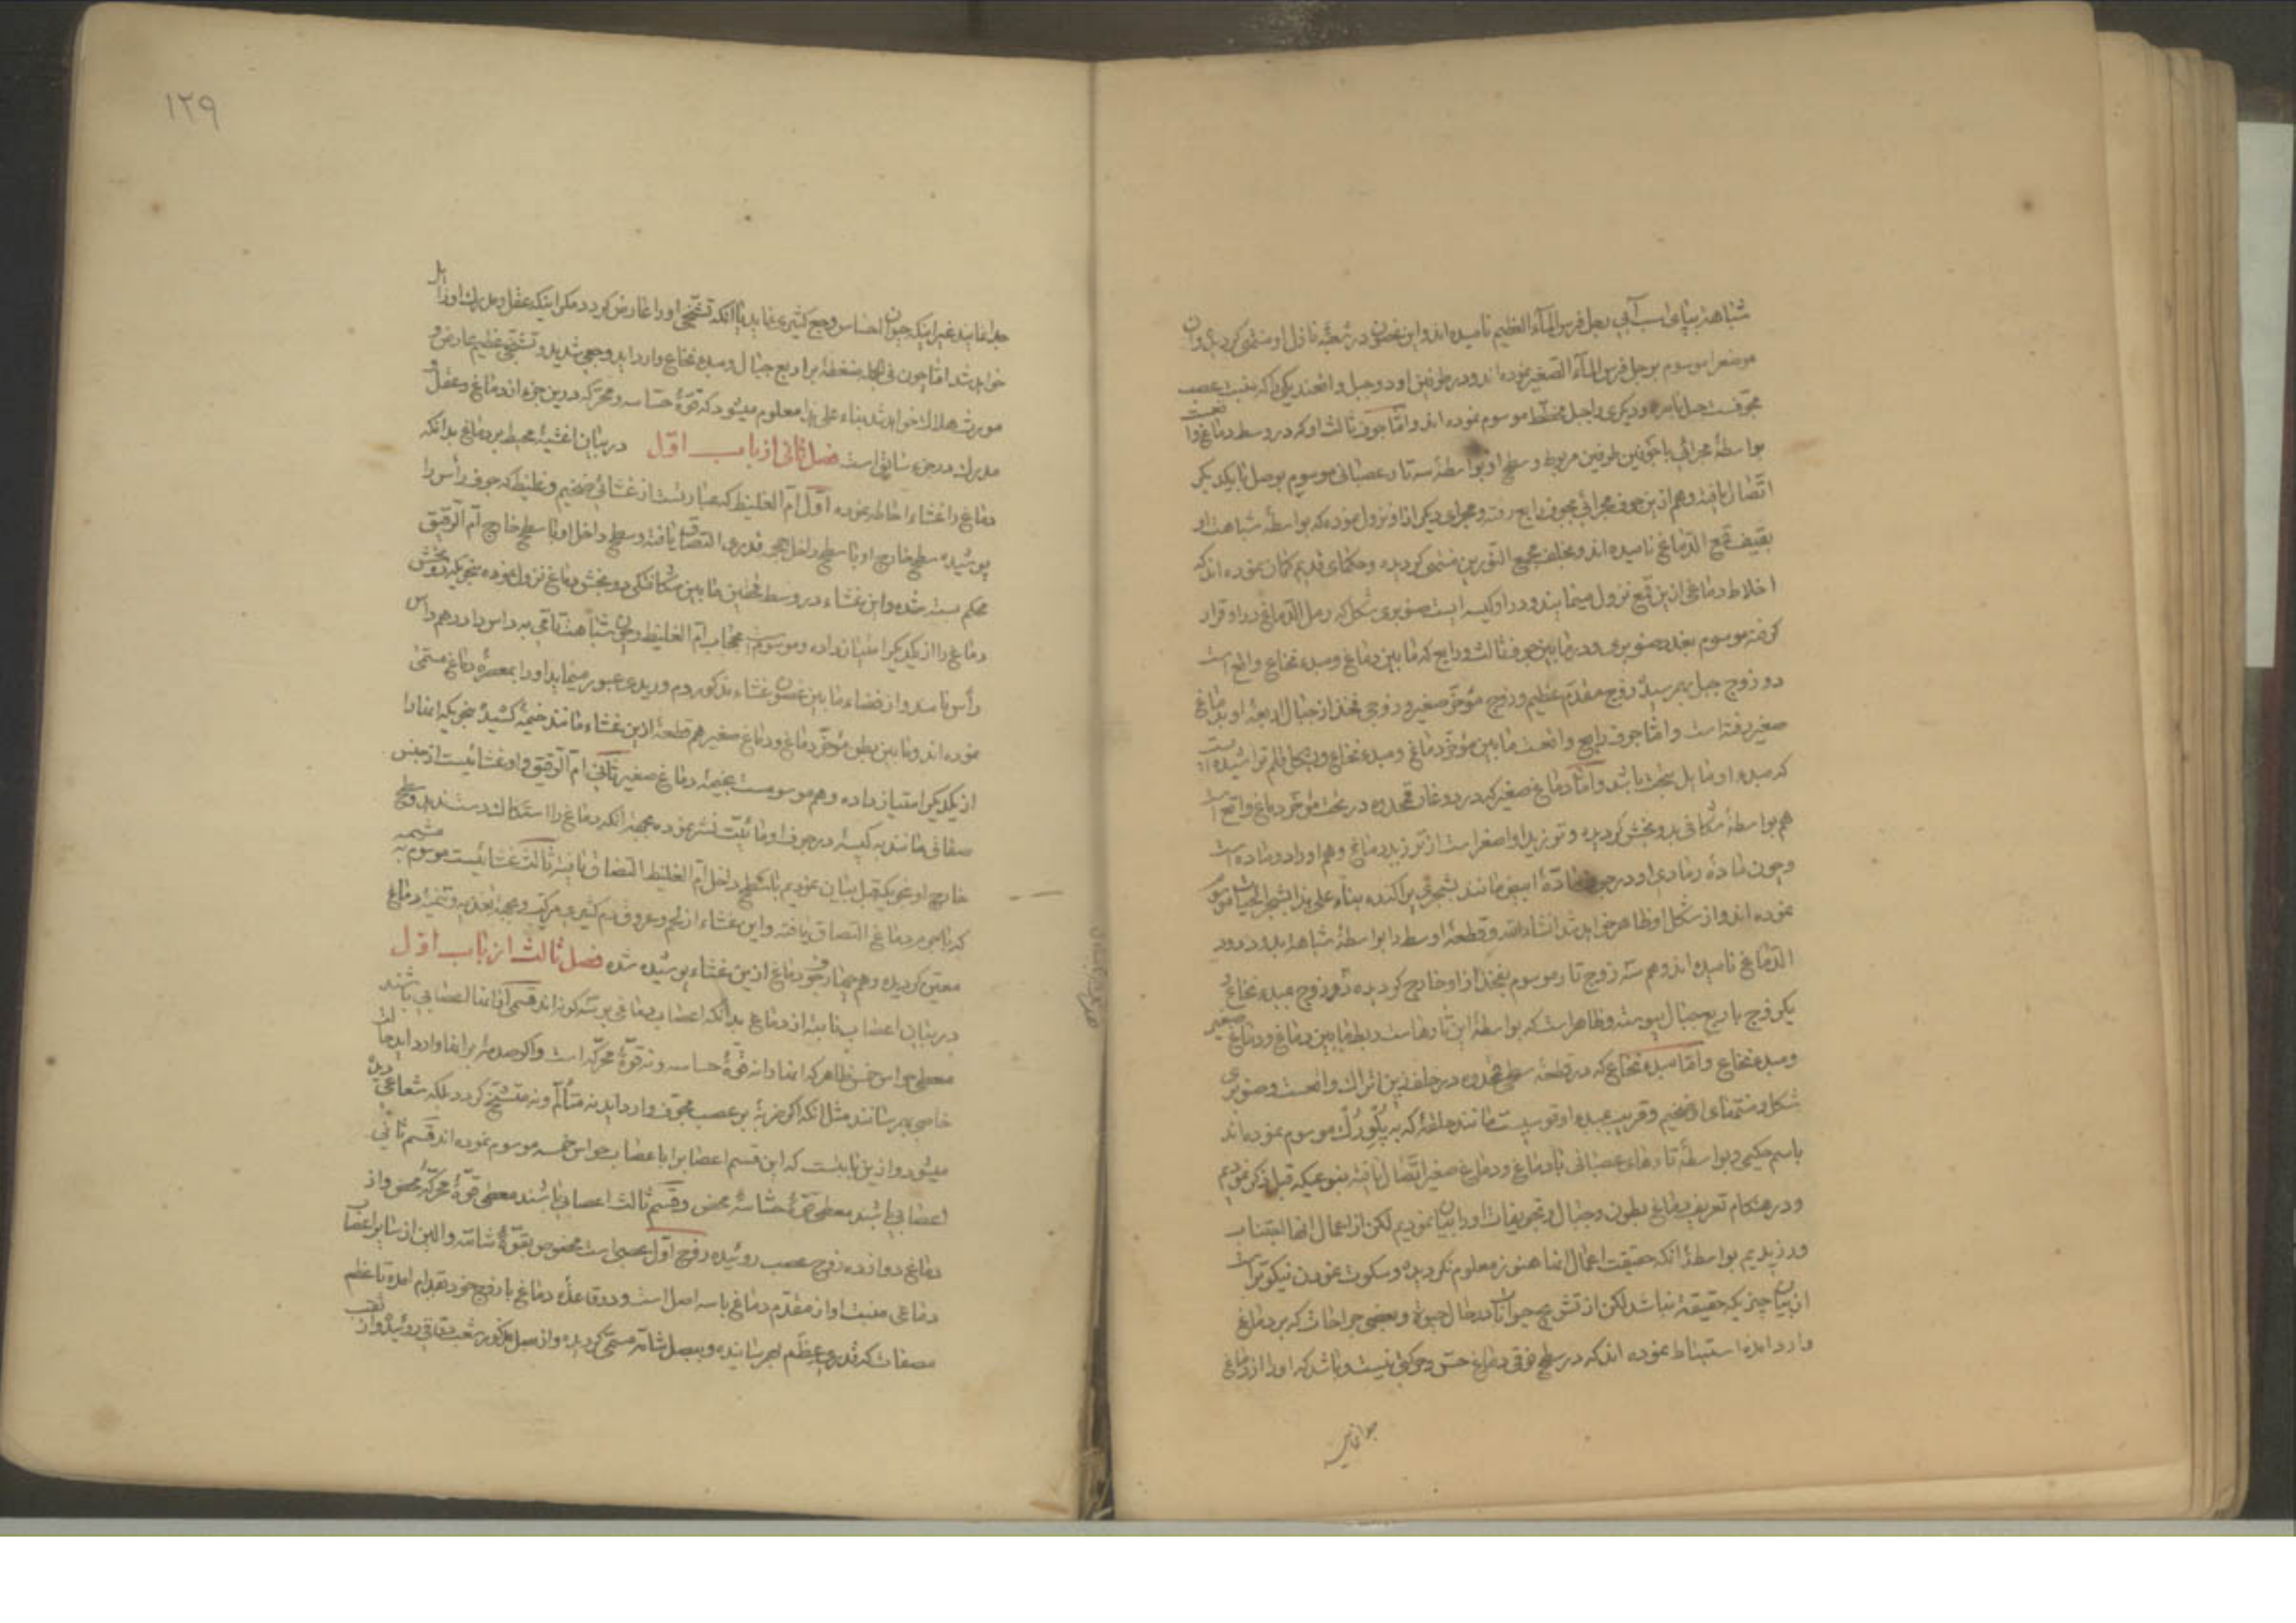 شباهة بپای اسب آبی برجل فرس المآء العظیم نامیده اند و این غصن در شعبهٔ نازل او منتهی کردیده و ان
موضع را موسوم برجل فرس المآء الصغیر نموده اند و در طرفین او دو حبل واقعند یکی را که بنبت عصب
مجوفست حبل باصره و دیکری را حبل مخطط موسوم نموده اند و امّا جوف ثالث او که در وسط دماغ واقعست
بواسطهٔ مجرائی با جوفین طرفین مربوط و سطح او بواسطهٔ سه تار عصبانی موسوم بوصل با یکدیکر
اتّصال یافته و هم ازین جوف مجرائی بجوف رابع رفته و مجرای دیکر از او نزول نموده که بواسطهٔ شباهت او
بقیف قمع الدّماغ نامیده اند و بخلف مجمع النّورین منتهی کردیده و حکمای قدیم کمان نموده اند که
اخلاط دماغی ازین قمع نزول مینمایند و در او کیسه ایست صنوبری شکل که رمل الدّماغ در او قرار
کرفته موسوم بغدد صنوبری و در مابین جوف ثالث و رابع که مابین دماغ و مبدء نخاع واقع است
دو زوج حبل بهم رسیده زوج مقدّم عظیم و زوج مؤخّر صغیر و زوجی فخذ از حبال اربعهٔ او بدماغ
صغیر رفته است و امّا جوف رابع واقعست مابین مؤخّر دماغ و مبدء نخاع و بشکل قلم تراشیده ایست
که مبدء او مایل بتحت باشد و امّا دماغ صغیر که در دو غار قمحدوه در تحت مؤخّر دماغ واقع است
هم بواسطهٔ شکافی بدو بخش کردیده و تورید او اصغر است از تورید دماغ و هم او را دو ماده است
و چون مادهٔ رمادی او در جوف مادّهٔ ابیض مانند شجری پراکنده بناء علی هذا بشجر الحیات موسوم
نموده اند و از شکل او ظاهر خواهد شد انشاءالله و قطعهٔ اوسط را بواسطهٔ شباهة بدود دود
الدّماغ نامیده اند و هم سه زوج تار موسوم بفخذ از او خارج کردیده دو زوج بمبدء نخاع و
یکزوج باربع حبال پیوسته و ظاهر است که بواسطهٔ این تارهاست ربط مابین دماغ و دماغ صغیر
و مبدء نخاع و امّا مبدء نخاع که در قطعهٔ سطح قمحدوه در خلف زین اتراک واقعست و صنوبری
شکل و منتهای او ضخیم و قریب بمبدء او قوسیست مانند حلقهٔ که به پل وَرُل موسوم نموده اند
باسم حکیمی و بواسطهٔ تارهای عصبانی با دماغ و دماغ صغیر اتّصال یافته بنوعیکه قبل ذکر نمودیم
و در هنکام تعریف دماغ بطون و حبال و تجویفات او را بیان نمودیم لکن از اعمال انها اجتناب
ورزیدیم بواسطهٔ انکه حقیقت اعمال انها هنوز معلوم نکردیده و سکوت نمودن نیکوتر است
از بیان چیزیکه حقیقة نباشد لکن از تشریح حیوانات در حال حیوة و بعضی جراحات که بر دماغ
وارد امده استنباط نموده اند که در سطح فوقی دماغ حسّ و حرکتی نیست و باشد که او را از دماغ
جدا نمایند
۱۲۹
جدا نمایند غیر اینکه حیوان احساس وجع کثیری نماید یا انکه تشنّجی او را عارض کردد مکر اینکه عقل و مدرک او زایل
خواهد شد امّا چون فی الجمله ضغطهٔ بر اربع حبال و مبدء نخاع وارد اید وجعی شدید و تشنّجی عظیم عارض و
مورث هلاک خواهد شد بناء علی هذا معلوم میشود که قوّهٔ حسّاسه و محرّکه درین جزء اند دماغ و عقل و
مدرک در جزء سابق است فصل ثانی از باب اوّل در بیان اغشیهٔ محیط بر دماغ بدانکه
دماغ را غشاء احاطه نموده اوّل امّ الغلیظ که عبارتست از غشائی ضخیم و غلیظ که جوف رأس را
پوشیده سطح خارج او با سطح داخل قحف قدری التصاق یافته و سطح داخل او با سطح خارج امّ الرّقیق
محکم بسته شده و این غشاء در وسط قحفین مابین شکافتکی دو بخش دماغ نزول نموده بنحویکه دو بخش
دماغ را از یکدیکر امتیاز داده و موسوم است بحجاب امّ الغلیظ و چون شباهت تامّی به داس دارد هم داس
رأس نامند و از فضاء مابین غصون غشاء مذکور دم وریدی عبور مینماید او را بمعصرهٔ دماغ مسمّی
نموده اند و مابین بطن مؤخّر دماغ و دماغ صغیر هم قطعهٔ ازین غشاء مانند خیمهٔ کشیده بنحویکه انها را
از یکدیکر امتیاز داده و هم موسومست بخیمهٔ دماغ صغیر ثانی امّ الرّقیق و او غشائیست از جنس
صفاقی مانند به کیسهٔ در جوف او مائیّت نشر نموده بجهة انکه دماغ را استکاک دست ندهد و سطح
خارج او بنحویکه قبل بیان نمودیم با سطح داخل امّ الغلیظ التصاق یافته ثالث غشائیست موسوم به مشیمیه
که با جرم دماغ التصاق یافته و این غشاء از لحم و عروق دم کثیری مرکّب و بجهة تغذیه و تنمیهٔ دماغ
معیّن کردیده و هم جدار جوف دماغ ازین غشاء پوشیده شده فصل ثالث از باب اوّل
در بیان اعصاب نابته از دماغ بدانکه اعصاب دماغی بر سه کونه اند قسمی از انها اعصابی باشند
معطی حواس خمس ظاهر که انها را نه قوّهٔ حساسه و نه قوّهٔ محرّکه است و اکر صدمهٔ بر انها وارد اید حالت
خاصی بهم رسانند مثل انکه اکر ضربهٔ بر عصب مجوّف وارد اید نه متألّم و نه متشنّج کردد بلکه شعاعی دیده
میشود و ازین بابتست که این قسم اعصاب را باعصاب حواس خمسه موسوم نموده اند قسم ثانی
اعصابی باشند معطی قوّهٔ حسّاسهٔ محض و قسم ثالث اعصابی باشند معطی قوّهٔ محرّکهٔ محض و از
دماغ دوازده زوج عصب روئیده زوج اوّل عصبی است مخصوص بقوّهٔ شامّه و الین از سایر اعصاب
دماغی منبت او از مقدّم دماغ با سه اصل است و در قاعدهٔ دماغ با زوج خود بقدام امده تا عظم
مصفات که قدری عظّم بهم رسانیده و ببصل شامّه مسمّی کردیده و از بصل مذکور شعب دقاقی روئیده و از ثقب